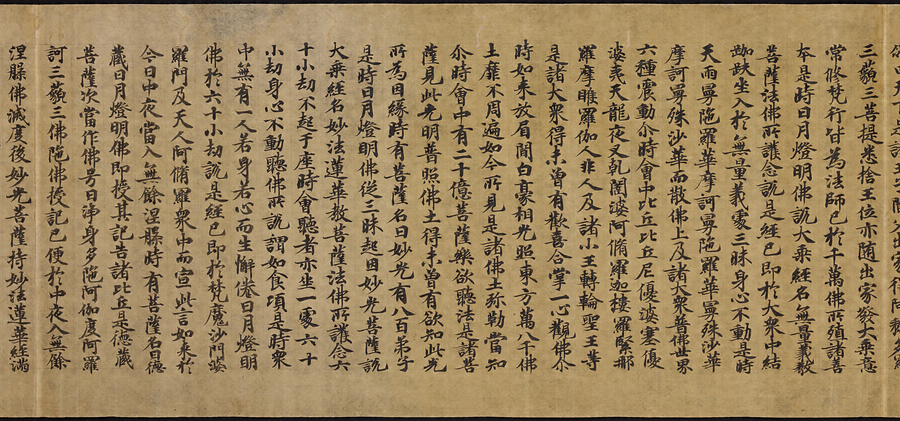 三藐三菩提悉捨王位亦随出家發大乘意
常脩梵行皆為法師已於千萬佛所殖諸善
本是時日月燈明佛說大乘經名無量義教
菩薩法佛所護念說是經已即於大眾中結
跏趺坐入於無量義處三昧身心不動是時
天雨曼陁羅華摩訶曼陁羅華曼殊沙華
摩訶曼殊沙華而散佛上及諸大眾普佛世界
六種震動尒時會中比丘比丘尼優婆塞優
婆夷天龍夜叉乾闥婆阿脩羅迦樓羅緊那
羅摩睺羅伽人非人及諸小王轉輪聖王等
是諸大眾得未曾有歡喜合掌一心觀佛尒
時如來放眉間白豪相光照東方萬八千佛
土靡不周遍如今所見是諸佛土弥勒當知
尒時會中有二十億菩薩樂欲聽法是諸菩
薩見此光明普照佛土得未曾有欲知此光
所為因緣時有菩薩名曰妙光有八百弟子
是時日月燈明佛從三昧起因妙光菩薩說
大乘經名妙法蓮華教菩薩法佛所護念六
十小劫不起于座時會聽者亦坐一處六十
小劫身心不動聽佛所說謂如食頃是時眾
中無有一人若身若心而生懈惓日月燈明
佛於六十小劫說是經已即於梵魔沙門婆
羅門及天人阿脩羅眾中而宣此言如來於
今日中夜當入無餘涅槃時有菩薩名曰德
藏日月燈明佛即授其記告諸比丘是德藏
菩薩次當作佛号曰淨身多陁阿伽度阿羅
訶三藐三佛陁佛授記已便於中夜入無餘
涅槃佛滅度後妙光菩薩持妙法蓮華經滿